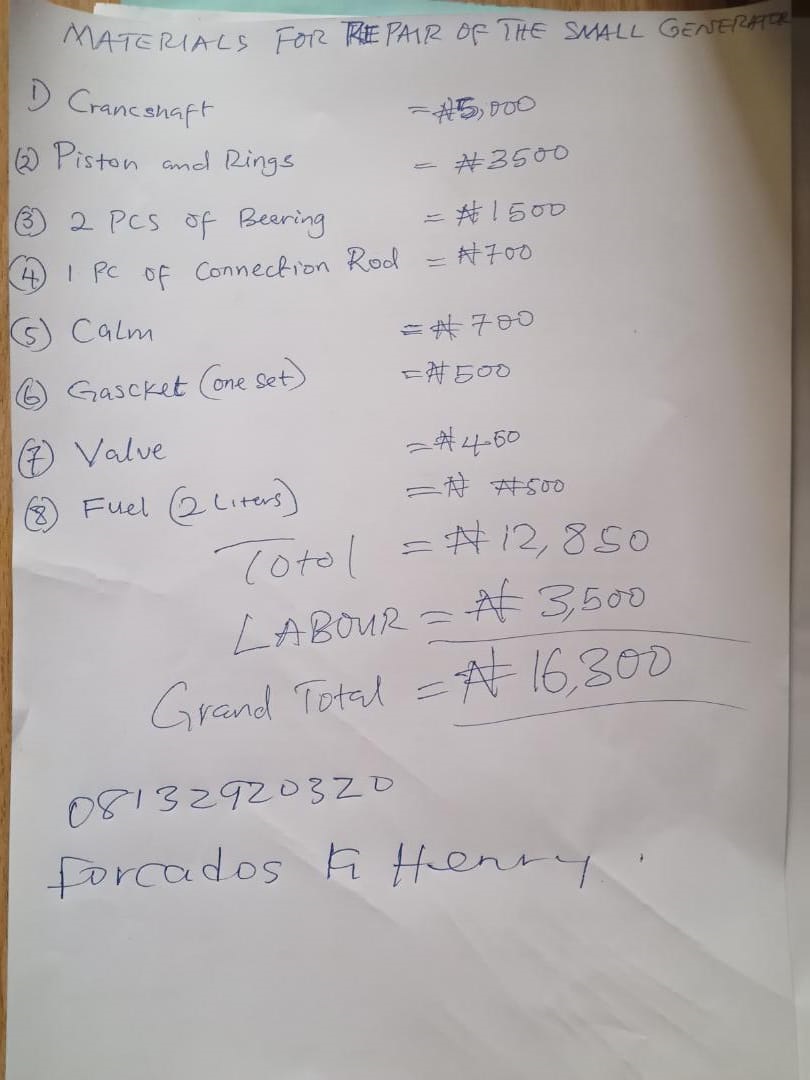 MATERIALS FOR REPAIR OF THE SMALL GENERATOR
1) Crancshaft = ₦5,000
(2) Piston and Rings = ₦3500
(3) 2 Pcs of Beering = ₦1500
(4) 1 Pc of Connection Rod = ₦700
(5) Calm = ₦700
(6) Gascket (one set) = ₦500
(7) Valve = ₦450
(8) Fuel (2 Liters) = ₦ ₦500
Totol = ₦12,850
LABOUR = ₦3,500
Grand Total = ₦16,300
08132920320
Forcados K Henry.